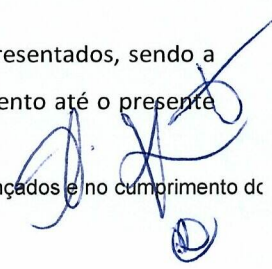 resentados, sendo a
ento até o presente
nçados e no cumprimento do